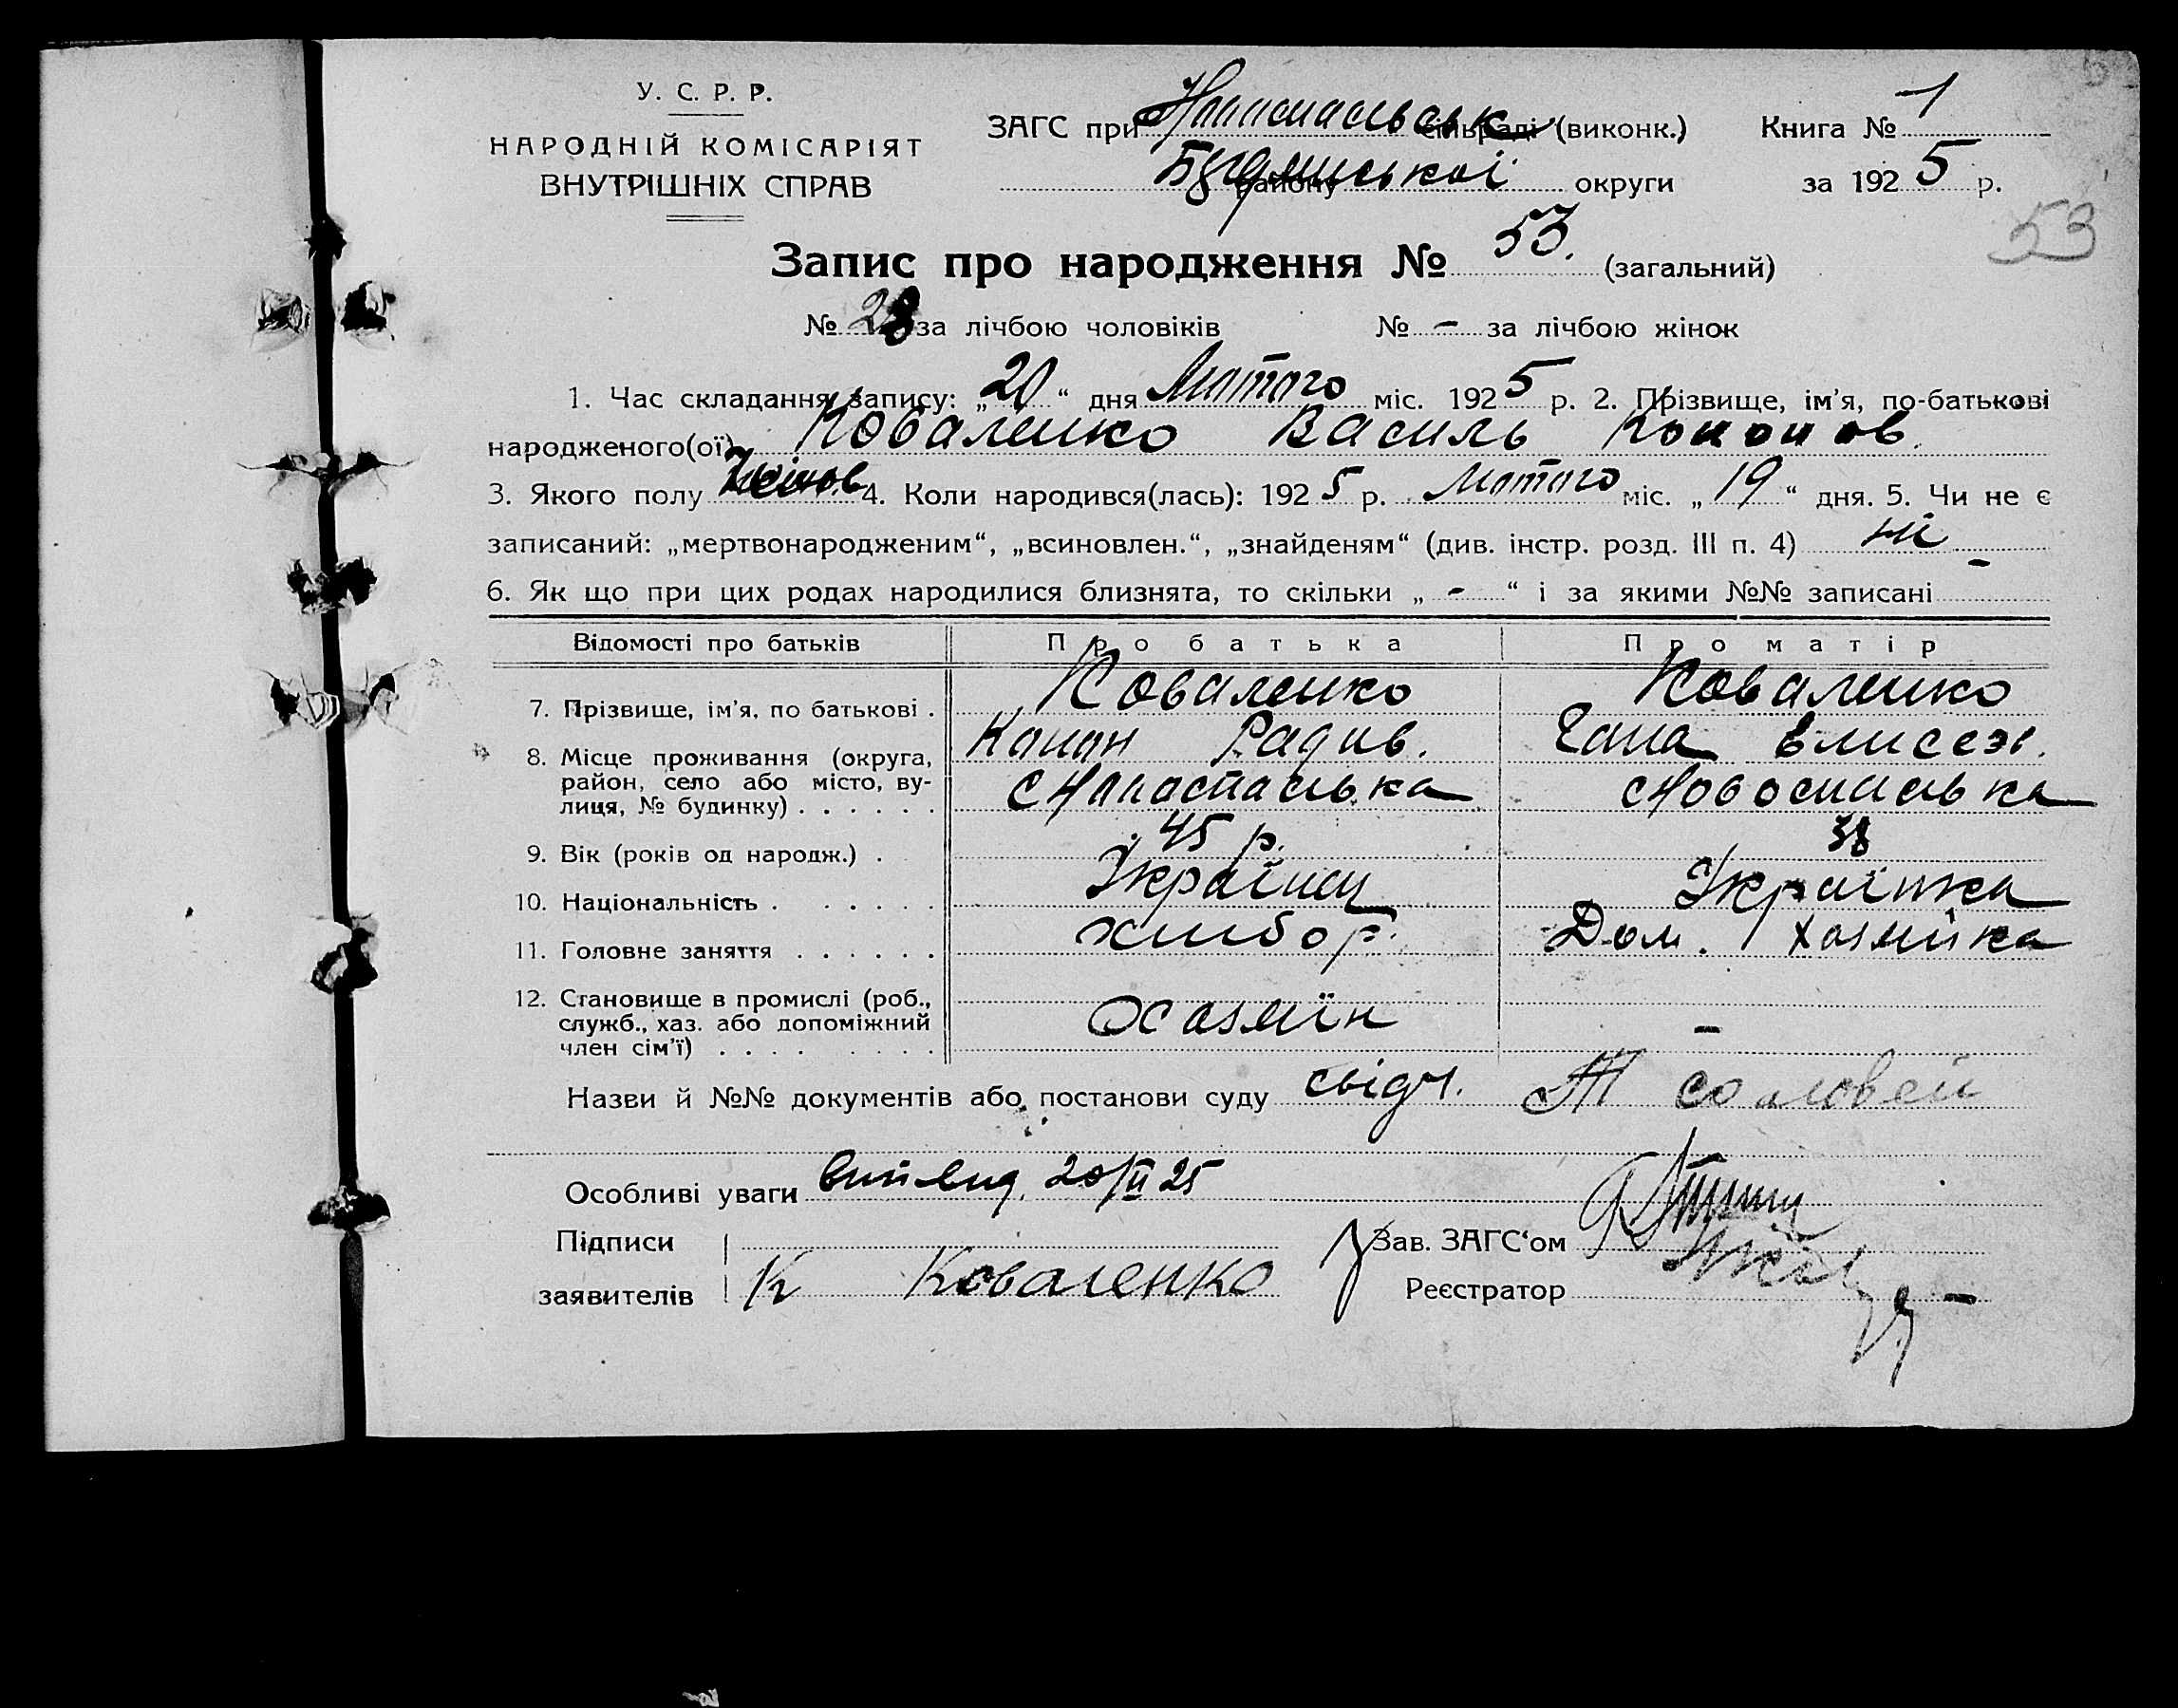 У. С. Р. Р.
НАРОДНІЙ КОМІСАРІЯТ
ВНУТРІШНІХ СПРАВ
ЗАГС при сільраді (виконк.) Книга № 1
району округи за 1925 р.
53
Запис про народження № 53. (загальний)
№ 28 за лічбою чоловіків № - за лічбою жінок
1. Час складання запису: „20“ дня Лютого міс. 1925 р. 2. Прізвище, ім’я, по-батькові
народженого(ої) Коваленко Василь Кононов.
3. Якого полу 4. Коли народився(лась): 1925 р. Лютого міс. „19“ дня. 5. Чи не є
записаний: „мертвонародженим“, „всиновлен.“, „знайденям“ (див. інстр. розд. III п. 4) ні
6. Як що при цих родах народилися близнята, то скільки „-“ і за якими №№ записані -
Відомості про батьків Про батька Про матір
7. Прізвище, ім’я, по батькові . Коваленко Коваленко
Конон Радив.
8. Місце проживання (округа,
район, село або місто, ву-
лиця, № будинку) . . . . . .
9. Вік (років од народж.) . 45 р. 38
10. Національність . . . . . . Українец Українка
11. Головне заняття . . . . . . хлибор. Дом. хозяйка
12. Становище в промислі (роб.,
служб., хаз. або допоміжний
член сім’ї) . . . . . . . . Хозяїн -
Назви й №№ документів або постанови суду свідч. Соловей
Особливі уваги 20/II 25
Підписи Зав. ЗАГС‘ом
заявителів К Коваленко Реєстратор